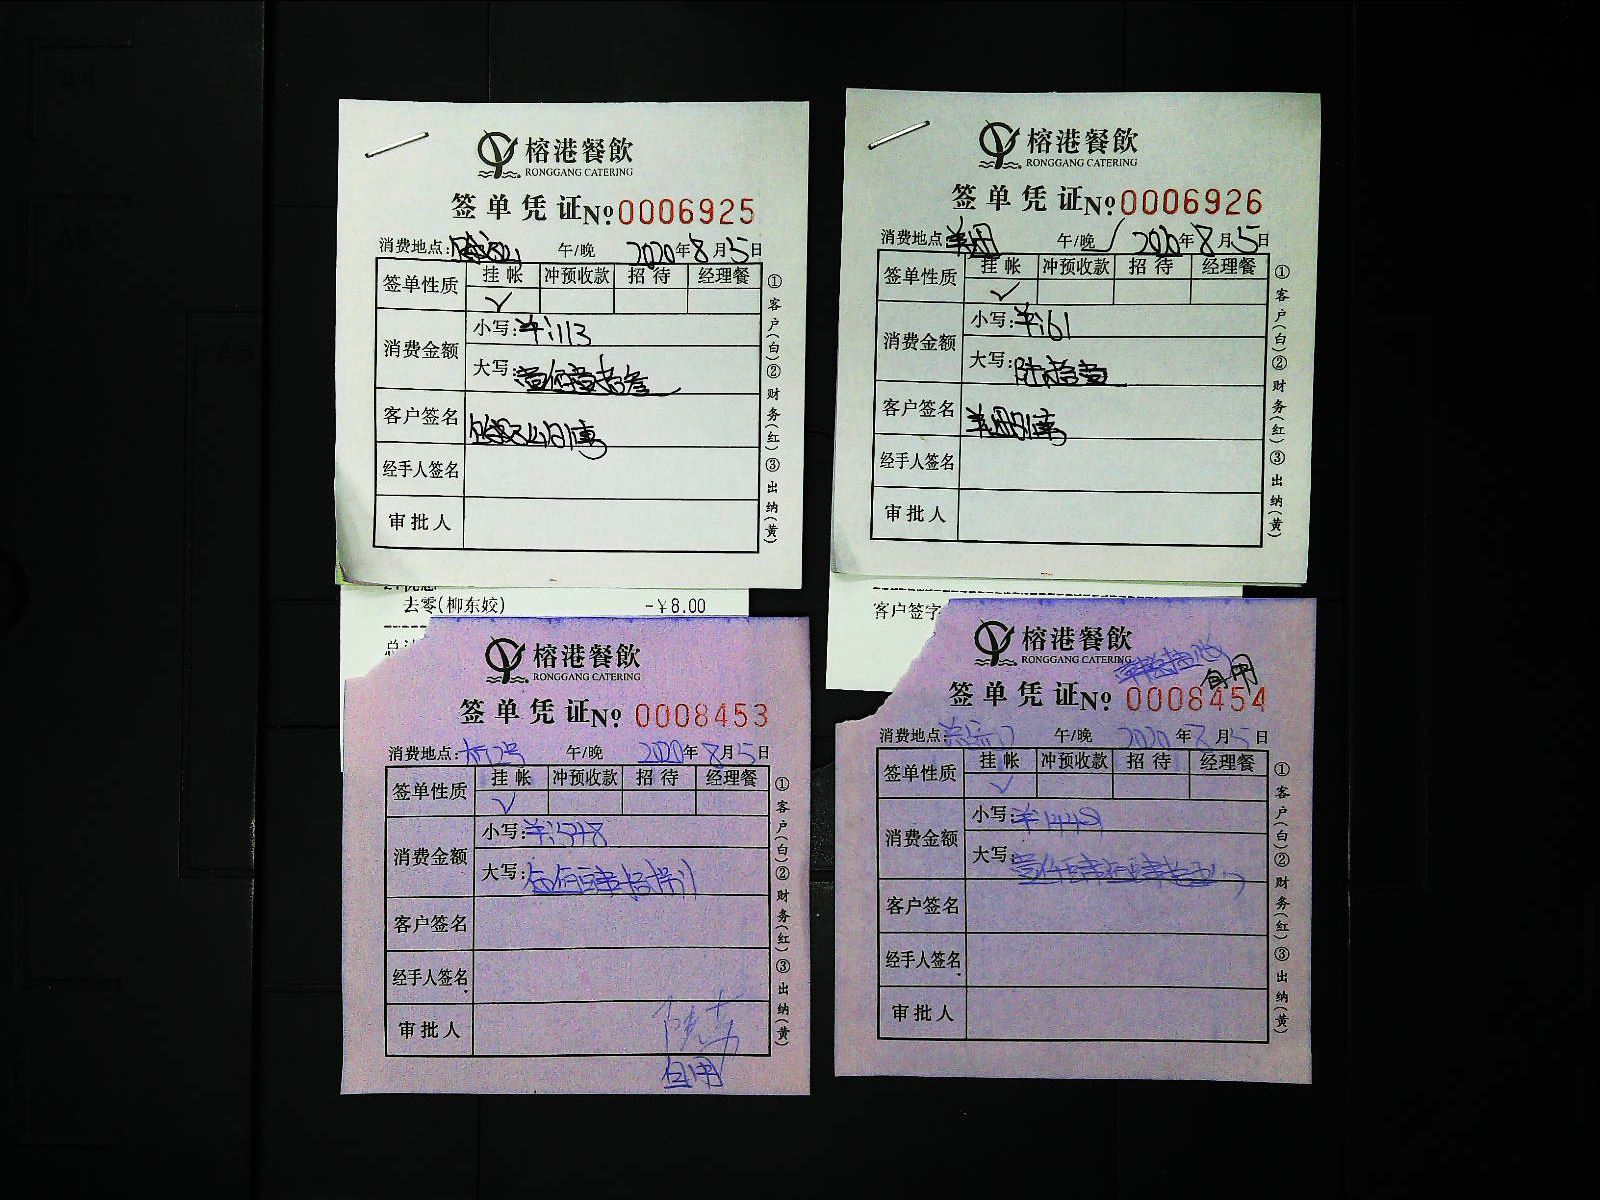 榕港餐飲
RONGGANG CATERING
签单凭证 № 0006925
消费地点: 午/晚 2020年8月5日
签单性质 挂帐 冲预收款 招待 经理餐
✓
消费金额 小写:¥:113
大写:壹佰壹拾叁
客户签名
经手人签名
审批人
①客户(白)②财务(红)③出纳(黄)
去零(柳东姣) -¥8.00
榕港餐飲
RONGGANG CATERING
签单凭证 № 0006926
消费地点: 午/晚✓ 2020年8月5日
签单性质 挂帐 冲预收款 招待 经理餐
✓
消费金额 小写:¥:61
大写:陆拾壹
客户签名
经手人签名
审批人
①客户(白)②财务(红)③出纳(黄)
客户签字
榕港餐飲
RONGGANG CATERING
签单凭证 № 0008453
消费地点: 午/晚 2020年8月5日
签单性质 挂帐 冲预收款 招待 经理餐
✓
消费金额 小写:¥:548
大写:伍佰肆拾捌
客户签名
经手人签名
审批人
自用
①客户(白)②财务(红)③出纳(黄)
榕港餐飲
RONGGANG CATERING
自用
签单凭证 № 0008454
消费地点: 午/晚 2020年8月5日
签单性质 挂帐 冲预收款 招待 经理餐
✓
消费金额 小写:
大写:
客户签名
经手人签名
审批人
①客户(白)②财务(红)③出纳(黄)